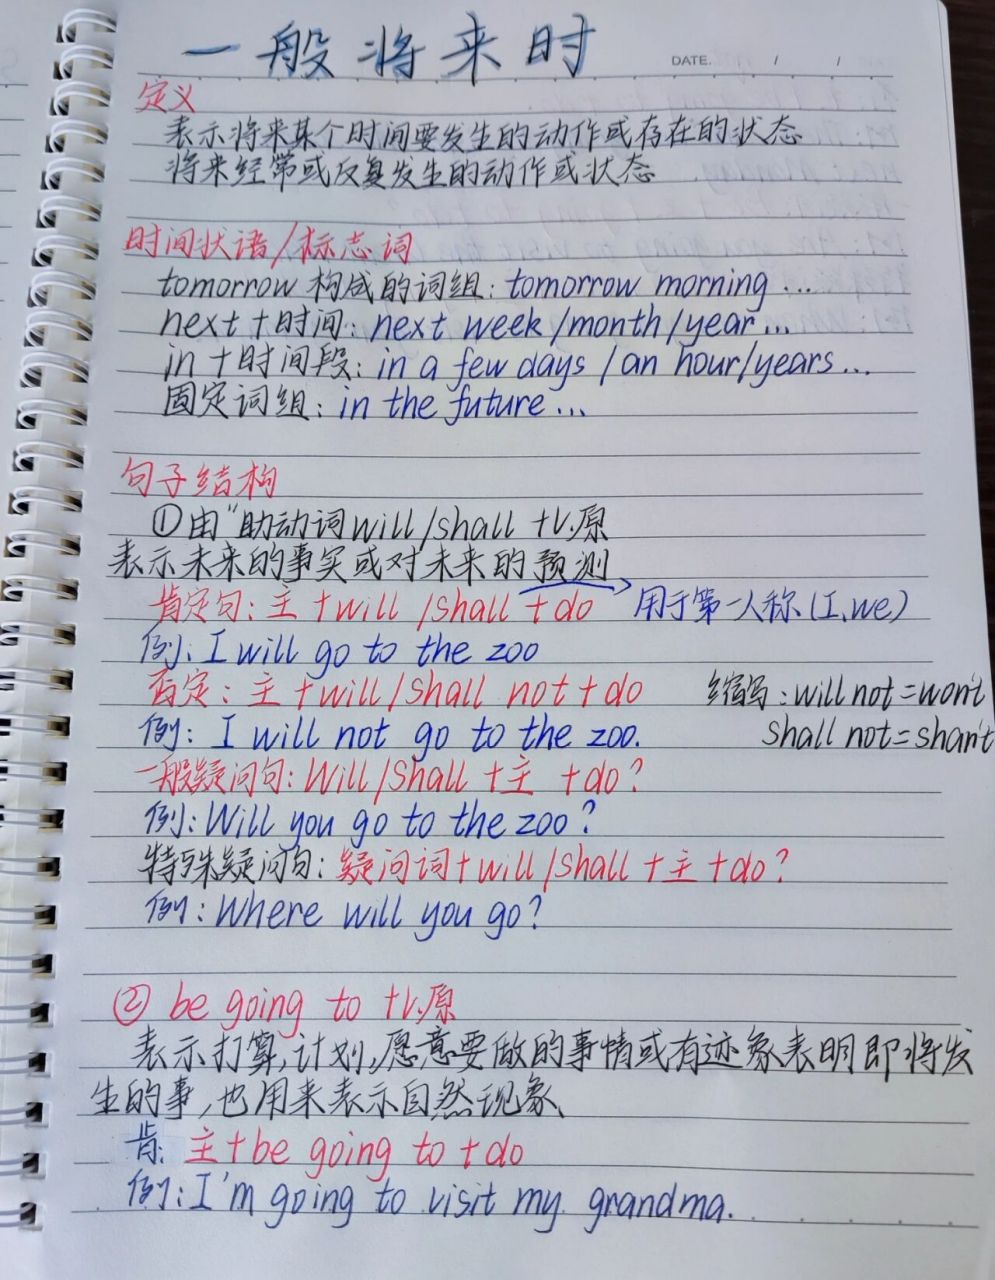 一般将来时
DATE. / /
定义
表示将来某个时间要发生的动作或存在的状态
将来经常或反复发生的动作或状态
时间状语/标志词
tomorrow 构成的词组: tomorrow morning ...
next + 时间: next week /month /year ...
in + 时间段: in a few days / an hour/years ...
固定词组: in the future ...
句子结构
①由"助动词will/shall +v.原
表示未来的事实或对未来的预测
肯定句: 主 +will /shall + do 用于第一人称(I,we)
例: I will go to the zoo
否定: 主 + will/shall not + do 缩写: will not = won't
例: I will not go to the zoo. shall not = shan't
一般疑问句: Will/Shall +主 +do?
例: Will you go to the zoo?
特殊疑问句: 疑问词+will/shall +主+do?
例: Where will you go?
② be going to +v.原
表示打算,计划,愿意要做的事情或有迹象表明即将发
生的事,也用来表示自然现象
肯: 主+be going to +do
例: I'm going to visit my grandma.